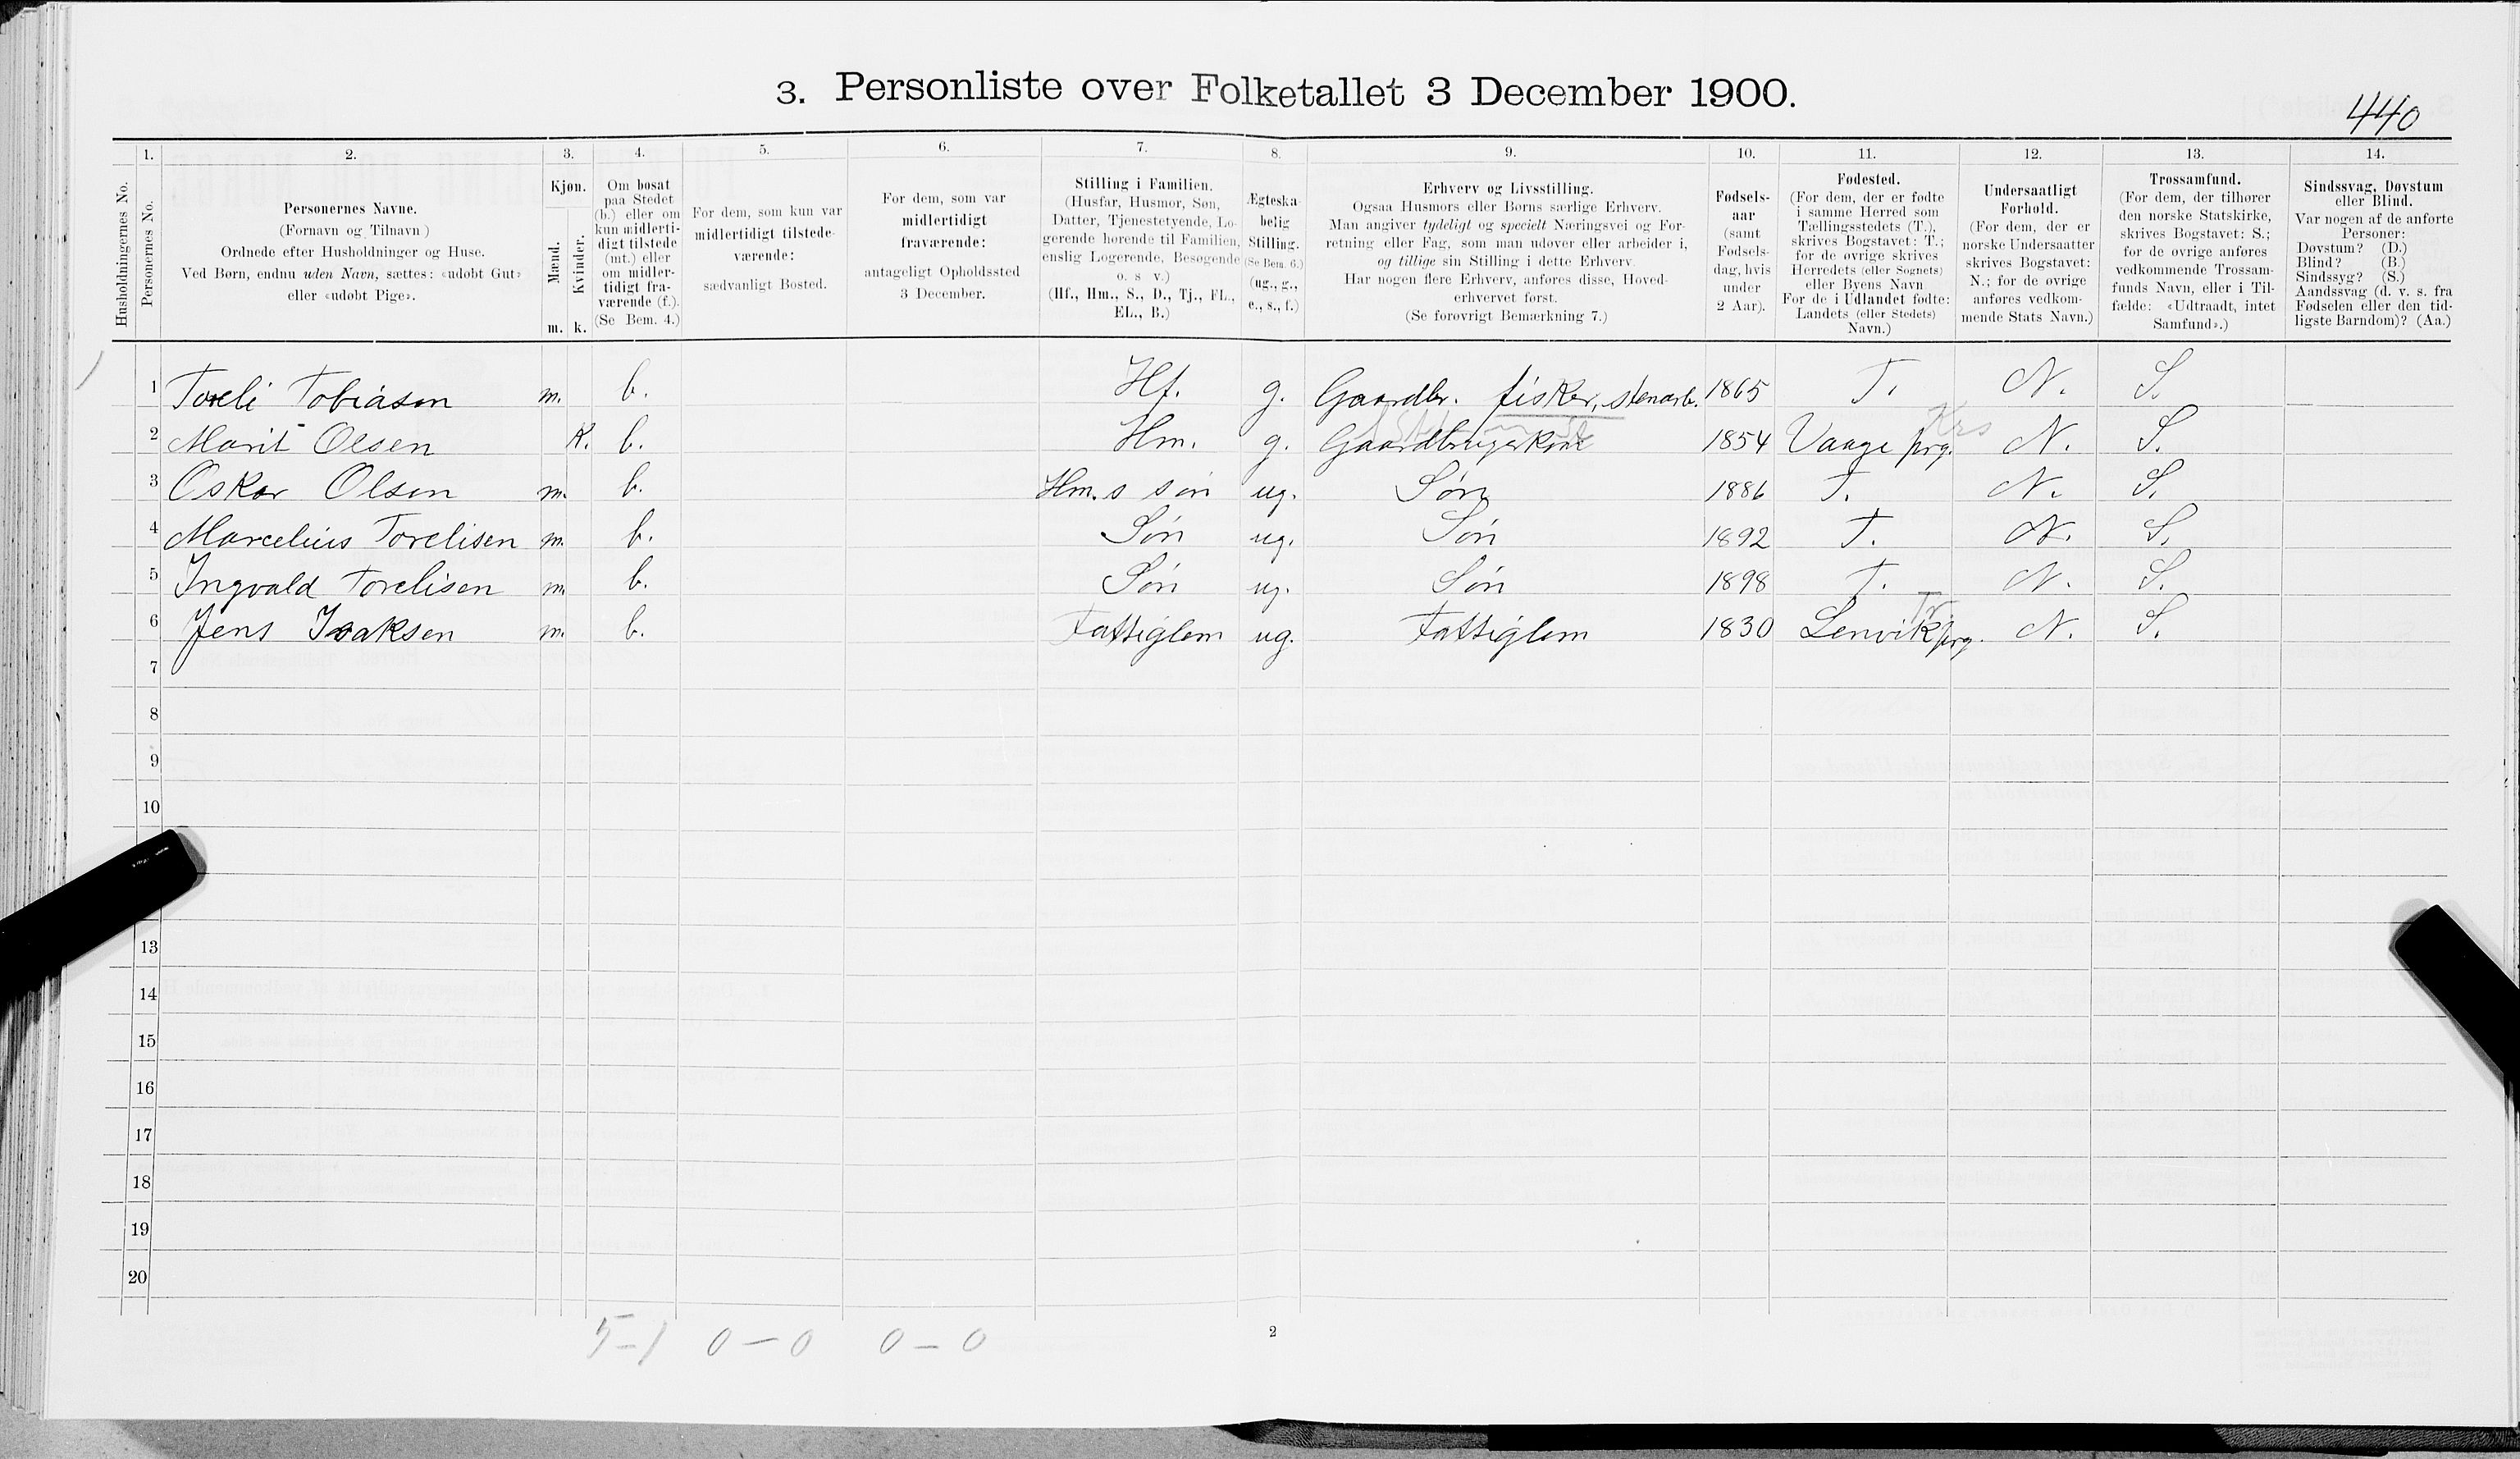 3. Personliste over Folketallet 3 December 1900.
440
1. 2. 3. 4. 5. 6. 7. 8. 9. 10. 11. 12. 13. 14.
Husholdningernes No.
Personernes No.
Personernes Navne.
(Fornavn og Tilnavn)
Ordnede efter Husholdninger og Huse.
Ved Børn, endnu uden Navn, sættes: «udøbt Gut»
eller «udøbt Pige».
Kjøn.
Mænd.
Kvinder.
m. k.
Om bosat
paa Stedet
(b.) eller om
kun midlerti-
digt tilstede
(mt.) eller
om midler-
tidigt fra-
værende (f.).
(Se Bem. 4.)
For dem, som kun var
midlertidigt tilstede-
værende:
sædvanligt Bosted.
For dem, som var
midlertidigt
fraværende:
antageligt Opholdssted
3 December.
Stilling i Familien.
(Husfar, Husmor, Søn,
Datter, Tjenestetyende, Lo-
gerende hørende til Familien,
enslig Logerende, Besøgende
o. s v.)
(Hf., Hm., S., D., Tj., FL.,
EL., B.)
Ægteska-
belig
Stilling.
(Se Bem. 6.)
(ug., g.,
e., s., f.)
Erhverv og Livsstilling.
Ogsaa Husmors eller Børns særlige Erhverv.
Man angiver tydeligt og specielt Næringsvei og For-
retning eller Fag, som man udøver eller arbeider i,
og tillige sin Stilling i dette Erhverv.
Har nogen flere Erhverv, anføres disse, Hoved-
erhvervet først.
(Se forøvrigt Bemærkning 7.)
Fødsels-
aar
(samt
Fødsels-
dag, hvis
under
2 Aar).
Fødested.
(For dem, der er fødte
i samme Herred som
Tællingsstedets (T.),
skrives Bogstavet: T.;
for de øvrige skrives
Herredets (eller Sognets)
eller Byens Navn
For de i Udlandet fødte:
Landets (eller Stedets)
Navn.)
Undersaatligt
Forhold.
(For dem, der er
norske Undersaatter
skrives Bogstavet:
N.; for de øvrige
anføres vedkom-
mende Stats Navn.)
Trossamfund.
(For dem, der tilhører
den norske Statskirke,
skrives Bogstavet: S.;
for de øvrige anføres
vedkommende Trossam-
funds Navn, eller i Til-
fælde: «Udtraadt, intet
Samfund».)
Sindssvag, Døvstum
eller Blind.
Var nogen af de anførte
Personer:
Døvstum? (D.)
Blind? (B.)
Sindssyg? (S.)
Aandssvag (d. v. s. fra
Fødselen eller den tid-
ligste Barndom)? (Aa.)
1 Toreli Tobiasen m. b. Hf. g. Gaardbr. fisker, stenarb. 1865 T. N. S.
Krs
2 Marit Olsen K. b. Hm. g. Gaardbrugerkone 1854 Vaage prg. N. S.
3 Oskar Olsen m. b. Hm.s søn ug. Søn 1886 T. N. S.
4 Marcelius Torelisen m. b. Søn ug. Søn 1892 T. N. S.
5 Ingvald Torelisen m. b. Søn ug. Søn 1898 T. N. S.
Tr
6 Jens Isaksen m. b. Fattiglem ug. Fattiglem 1830 Lenvik prg. N. S.
7
8
9
10
13
14
15
16
17
18
19
20
5-1 0-0 0-0
2